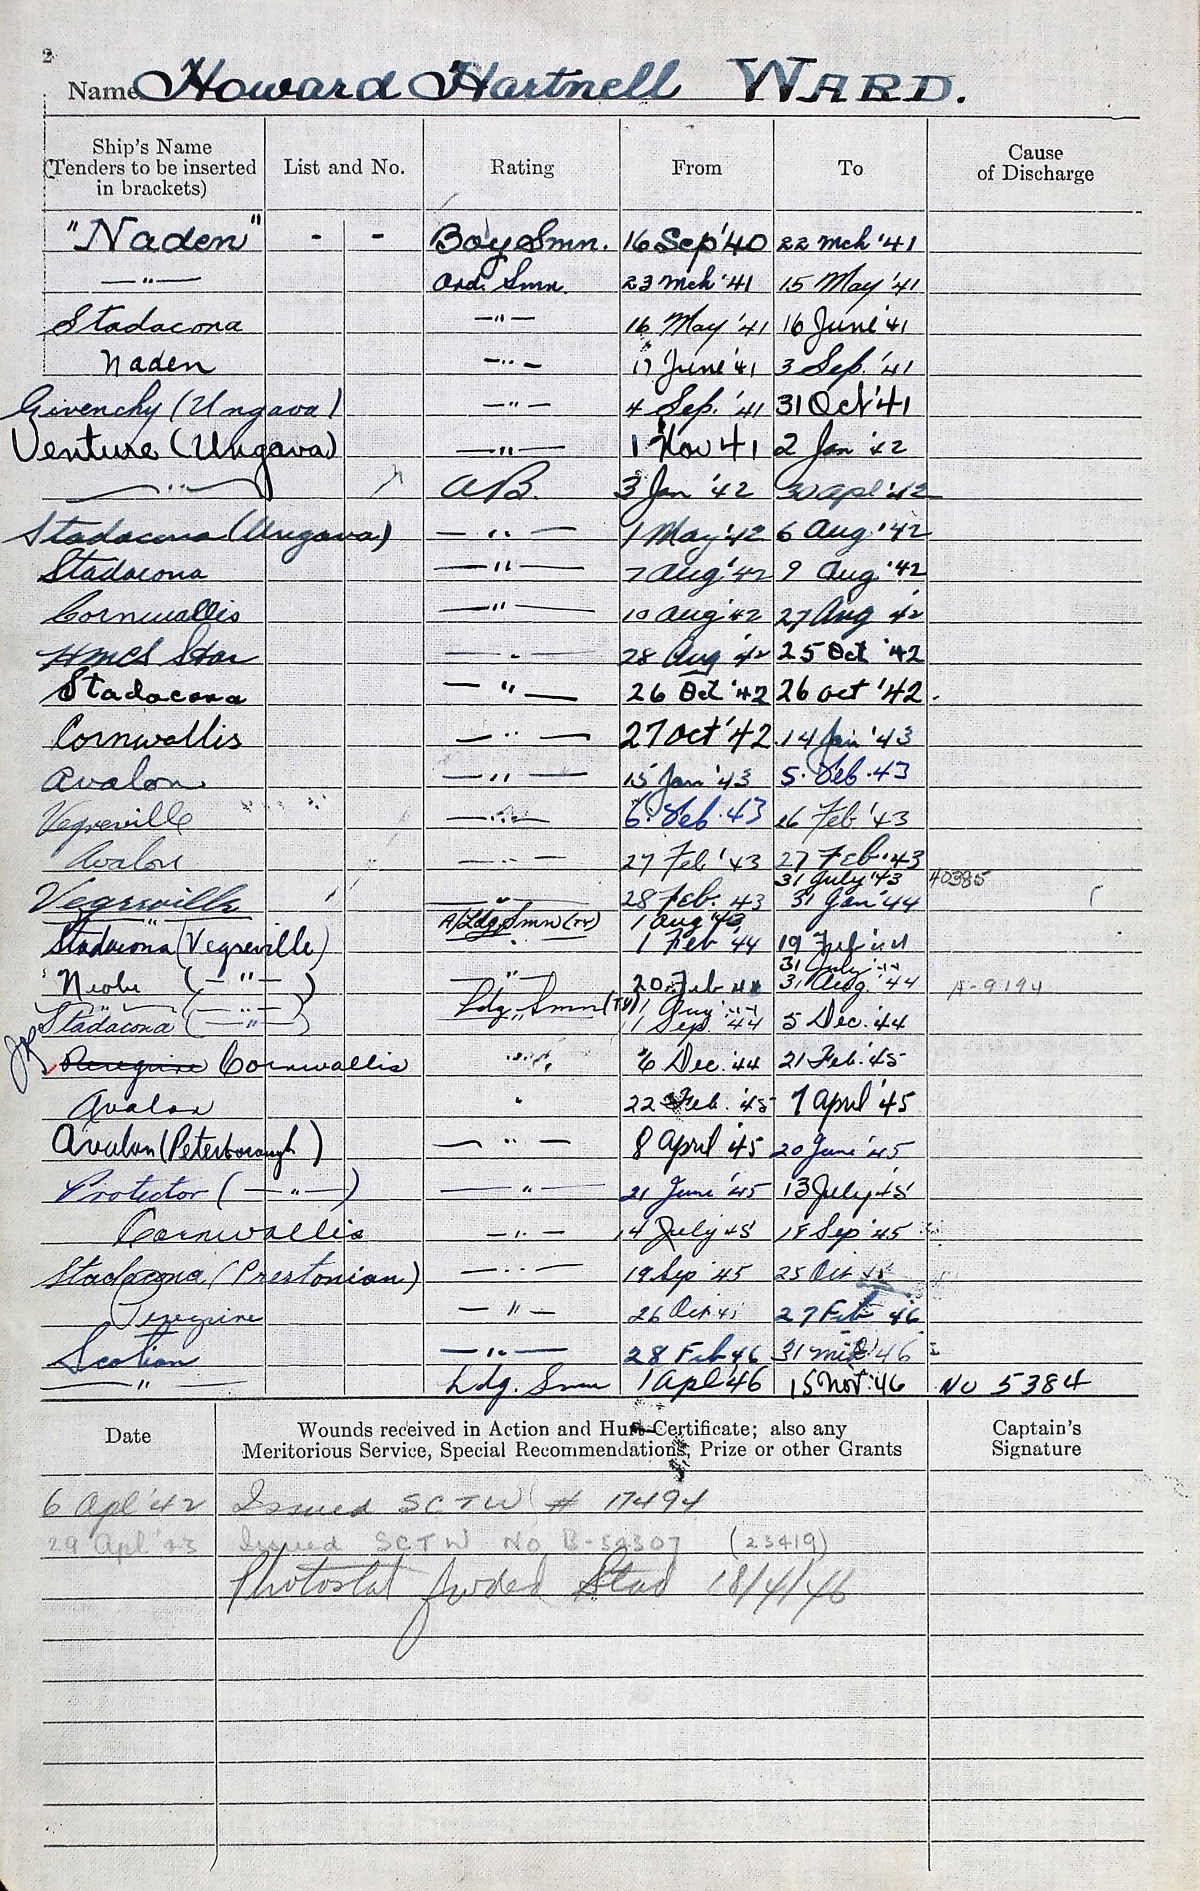 2
Name Howard Hartnell WARD.
Ship's Name (Tenders to be inserted in brackets) List and No. Rating From To Cause of Discharge
"Naden" - - Boy Smn. 16 Sep '40 22 Mch '41
— " — Ord. Smn. 23 Mch '41 15 May '41
Stadacona — " — 16 May '41 16 June '41
Naden — " — 17 June '41 3 Sep. '41
Givenchy (Ungava) — " — 4 Sep. '41 31 Oct '41
Venture (Ungava) — " — 1 Nov 41 2 Jan '42
— " — A.B. 3 Jan '42 30 Apl '42
Stadacona (Ungava) — " — 1 May '42 6 Aug '42
Stadacona — " — 7 Aug '42 9 Aug '42
Cornwallis — " — 10 Aug '42 27 Aug '42
HMCS Star — " — 28 Aug '42 25 Oct '42
Stadacona — " — 26 Oct '42 26 Oct '42.
Cornwallis — " — 27 Oct '42 14 Jan '43
Avalon — " — 15 Jan '43 5. Feb. 43
Vegreville — " — 6. Feb. 43 26 Feb '43
Avalon — " — 27 Feb '43 27 Feb. '43
31 July '43 40385
Vegreville — " — 28 Feb. 43 31 Jan '44
" A/Ldg. Smn (Ty) 1 Aug '43
Stadacona (Vegreville) " 1 Feb '44 19 Feb '44
31 July
Niobe ( — " — ) — " — 20 Feb 44 31 Aug. '44 A-9194
" " Ldg. Smn (Ty) 1 Aug
Stadacona ( — " — ) 1 Sep. '44 5 Dec. '44
Peregrine Cornwallis " 6 Dec. '44 21 Feb. '45
Avalon " 22 Feb. '45 7 April '45
Avalon (Peterborough) — " — 8 April '45 20 June '45
Protector ( — " — ) — " — 21 June '45 13 July 45
Cornwallis — " — 14 July 45 18 Sep '45
Stadacona (Prestonian) — " — 19 Sep '45 25 Oct 45
Peregrine — " — 26 Oct 45 27 Feb 46
Scotian — " — 28 Feb 46 31 Mch '46
— " — Ldg. Smn 1 Apl '46 15 Nov. 46 No 5384
Date Wounds received in Action and Hurt Certificate; also any Meritorious Service, Special Recommendations, Prize or other Grants Captain's Signature
6 Apl '42 Issued SCTW # 17494
29 Apl '43 Issued SCTW No B-52307 (23419)
Photostat fwded Stad 18/4/46